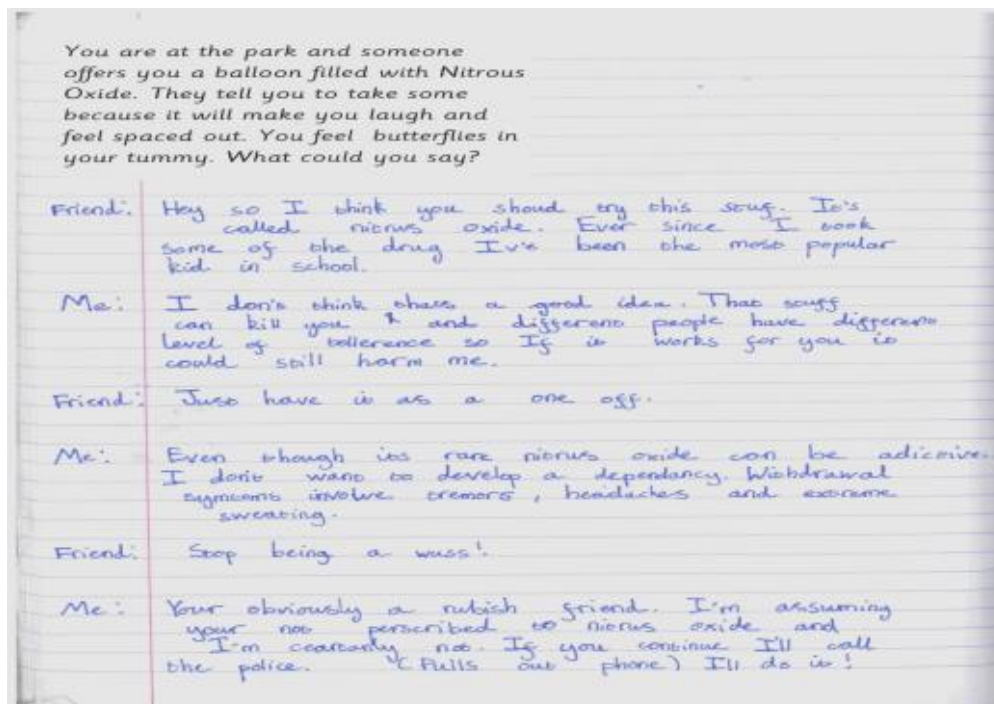 You are at the park and someone
offers you a balloon filled with Nitrous
Oxide. They tell you to take some
because it will make you laugh and
feel spaced out. You feel butterflies in
your tummy. What could you say?
Friend: Hey so I think you shoud try this stuf. It's
called nitrus oxide. Ever since I took
some of the drug Iv'e been the most popular
kid in school.
Me: I don't think thats a good idea. That stuff
can kill you and different people have different
level of tollerence so If it works for you it
could still harm me.
Friend: Just have it as a one off.
Me: Even though its rare nitrus oxide can be adictive.
I dont want to develop a dependancy. Withdrawal
symtoms involve tremors, headaches and extreme
sweating.
Friend: Stop being a wuss!
Me: Your obviously a rubish friend. I'm assuming
your not perscribed to nitrus oxide and
I'm ceartanly not. If you continue I'll call
the police. (Pulls out phone) I'll do it!